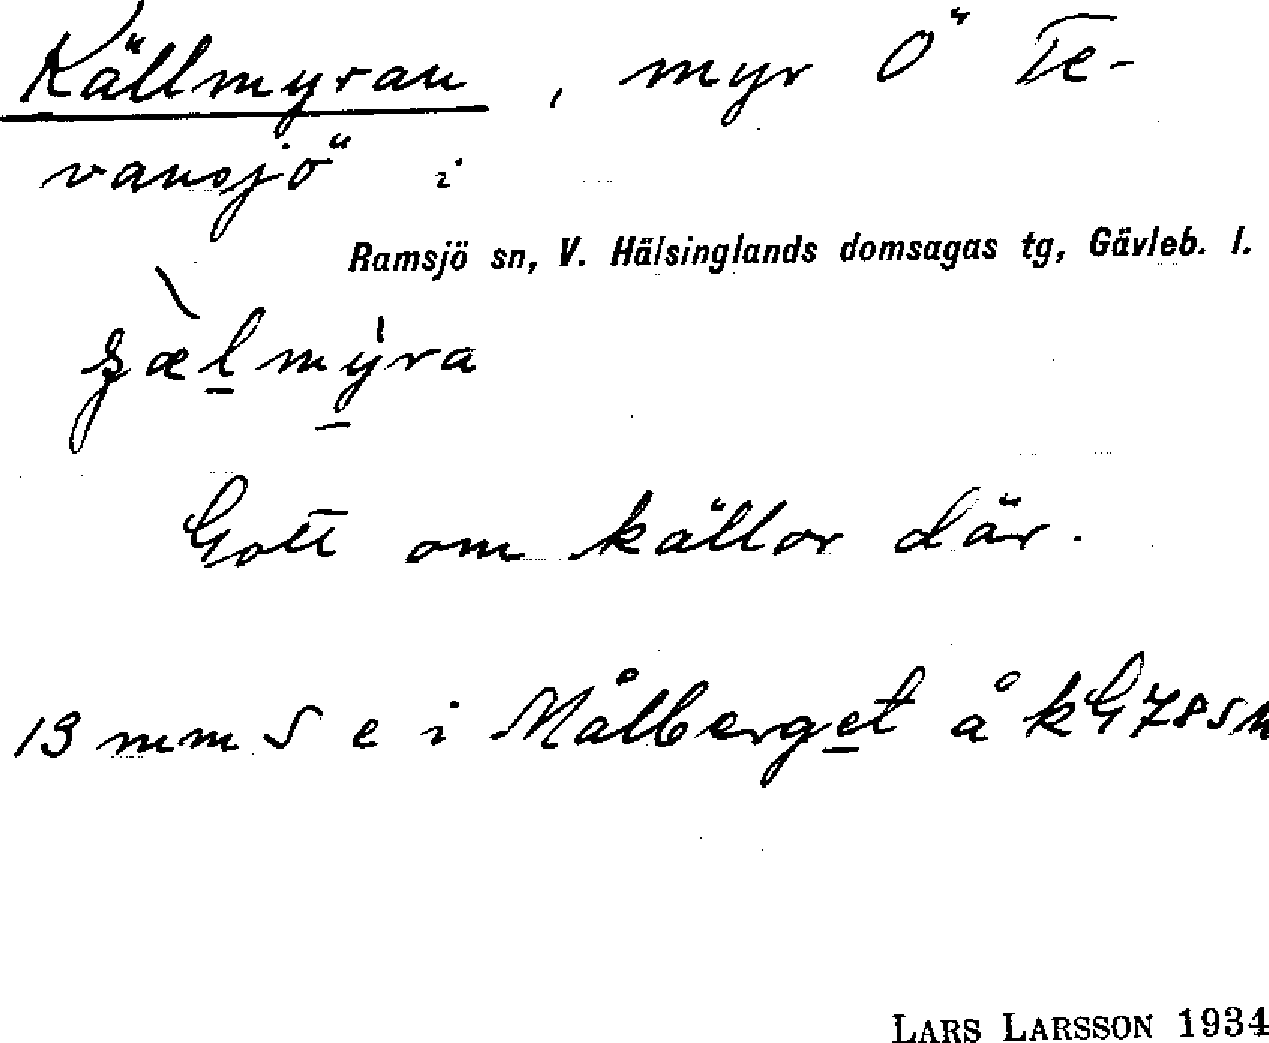 Källmyran, myr Ö Te-
vansjö i
Ramsjö sn, V. Hälsinglands domsagas tg, Gävleb. l.
Gott om källor där.
13 mm S e i Målberget å kG 785
LARS LARSSON 1934